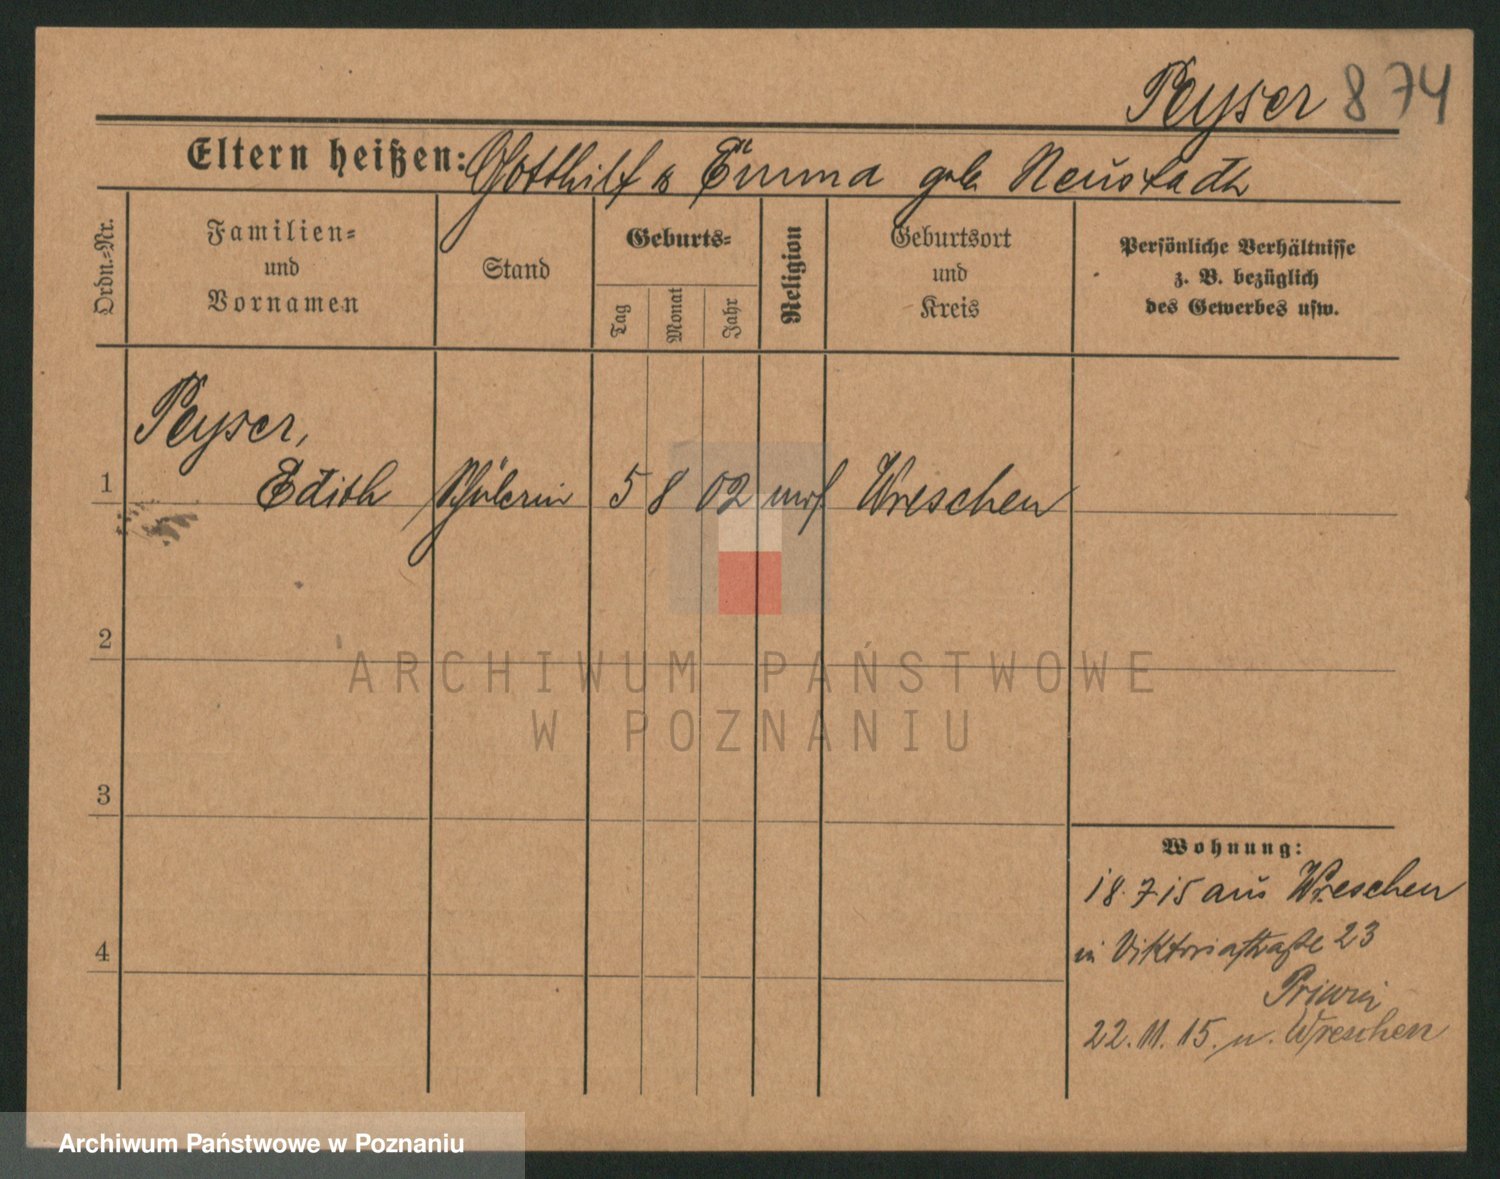 Peyser 874
Eltern heißen: Gotthilf & Emma geb Neustadt
Ordn.-Nr.
Familien-
und
Vornamen
Stand
Geburts-
Tag
Monat
Jahr
Religion
Geburtsort
und
Kreis
Persönliche Verhältnisse
z. B. bezüglich
des Gewerbes usw.
Peyser,
1 Edith Schülerin 5 8 02 mos Wreschen
2
3
4
ARCHIWUM PAŃSTWOWE
W POZNANIU
Wohnung:
18.7.15 aus Wreschen
in Viktoriastraße 23
22.11.15. n. Wreschen
Archiwum Państwowe w Poznaniu